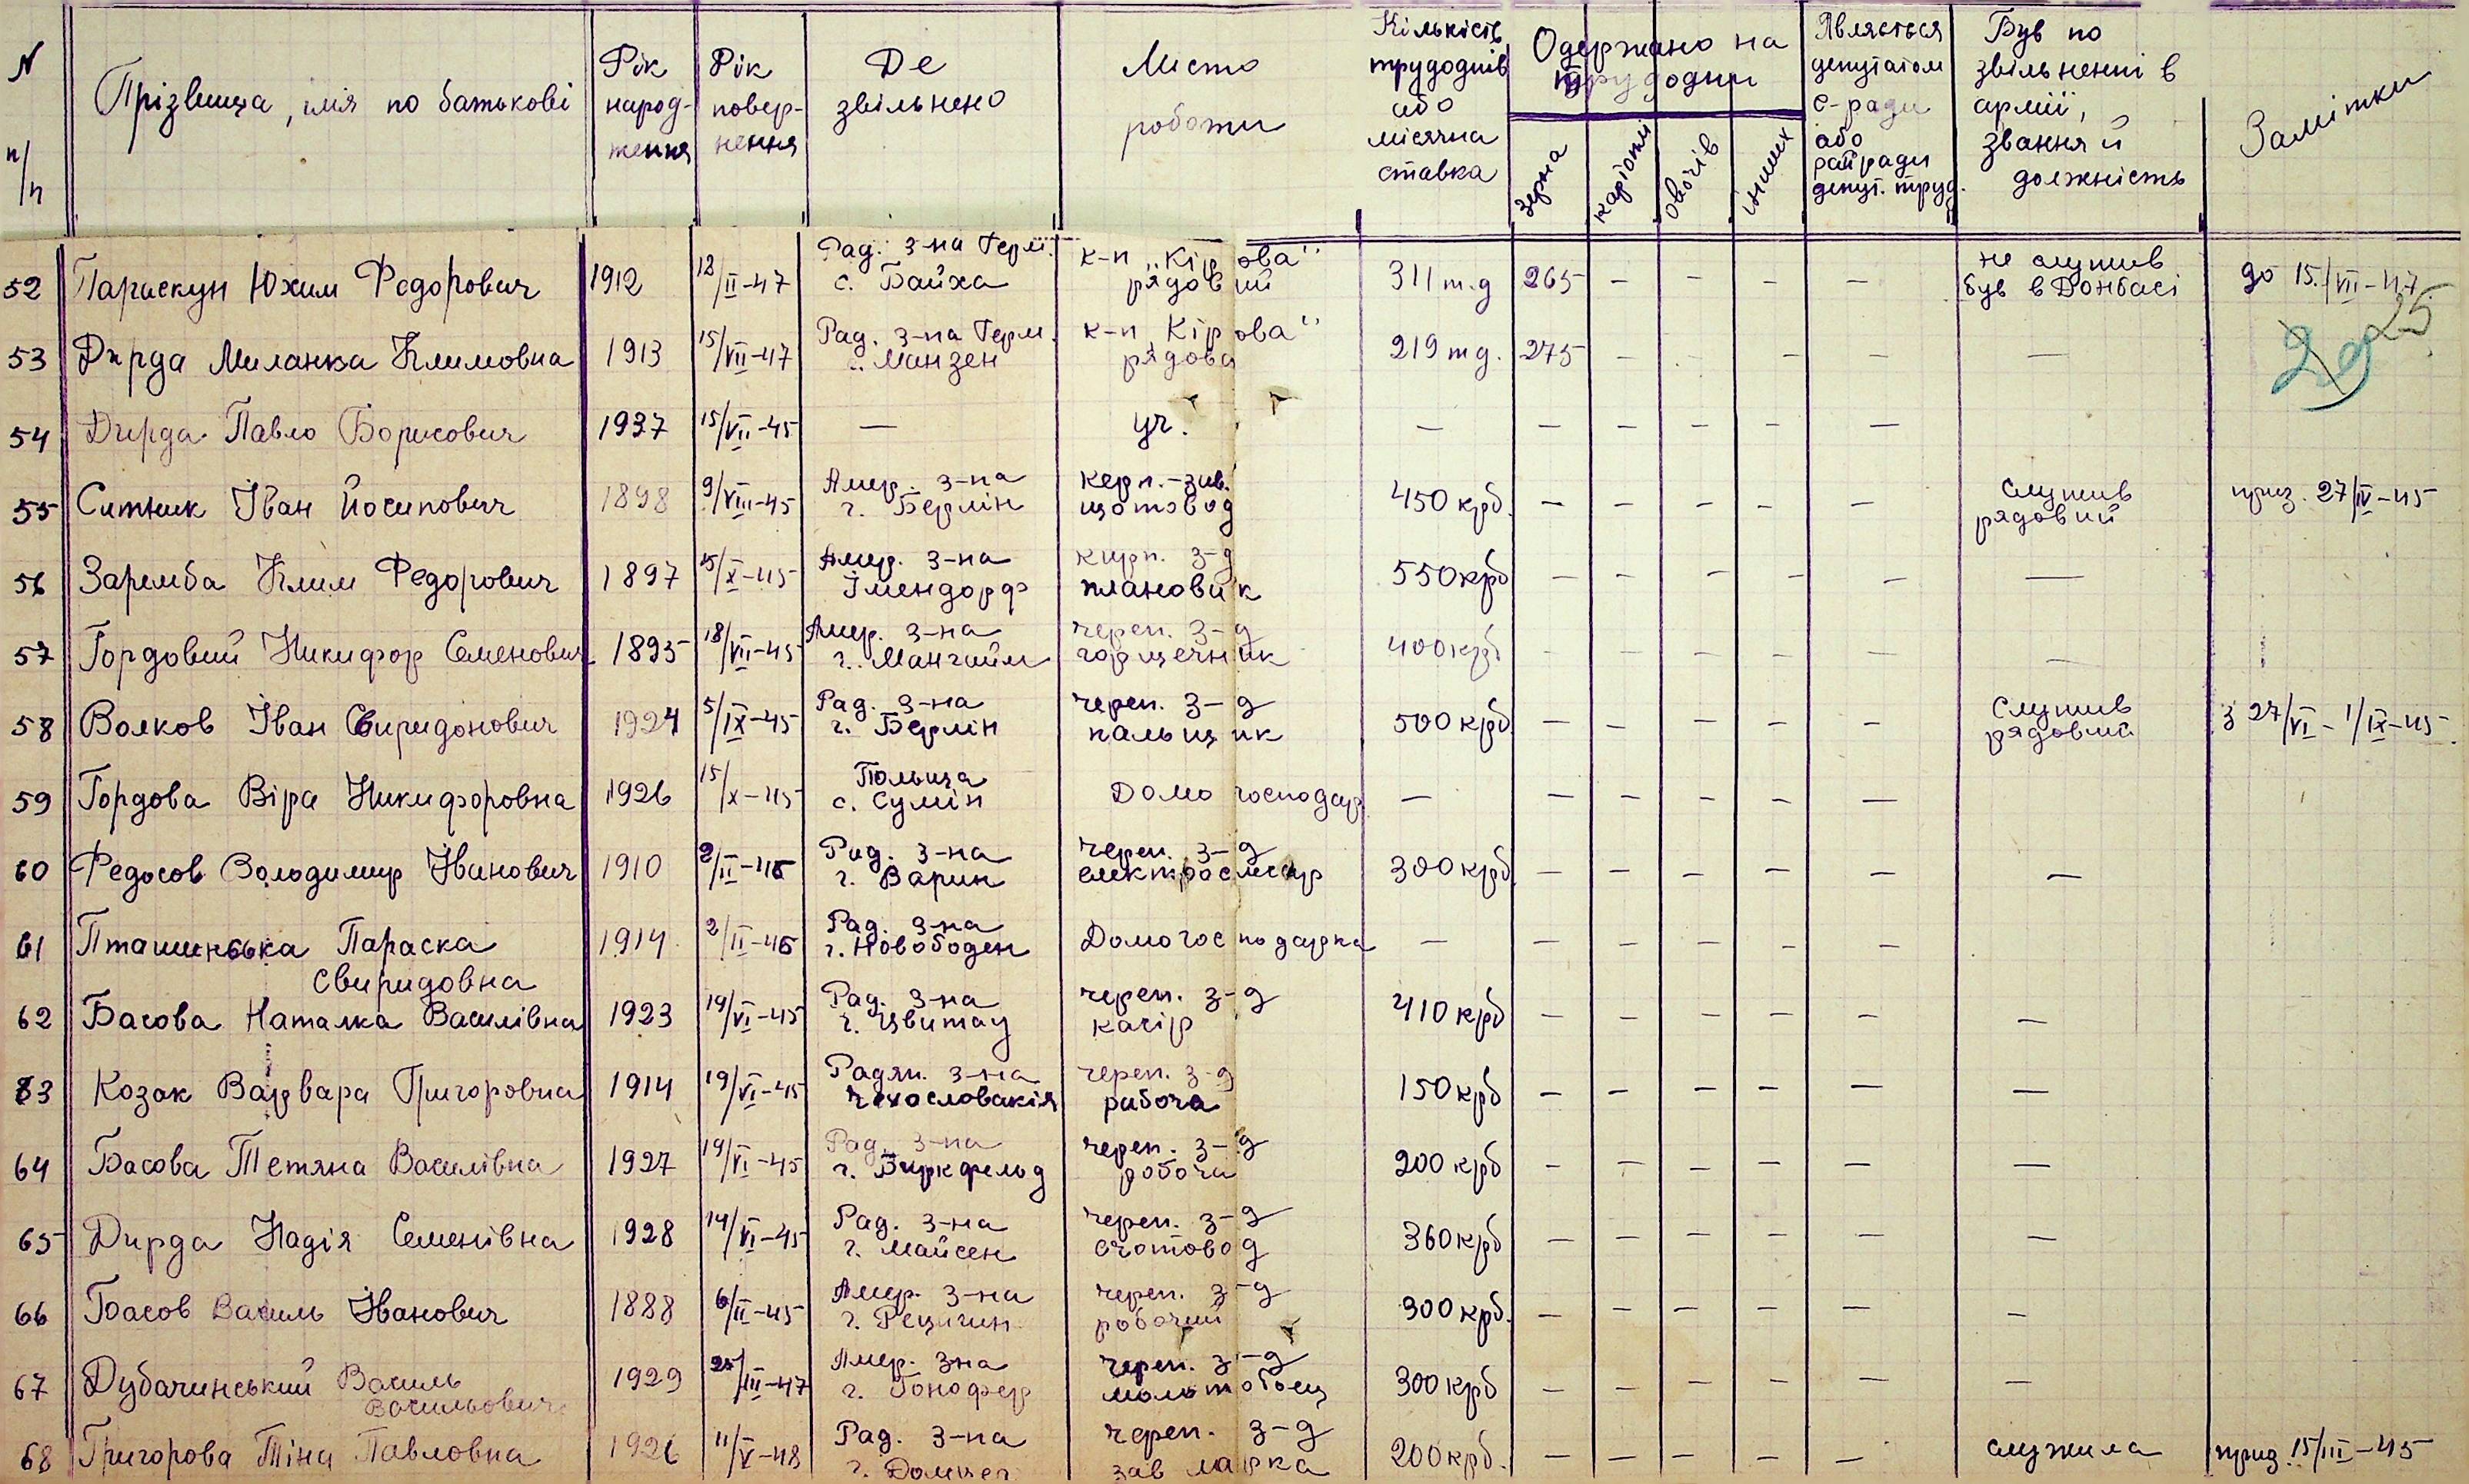 N п/п | Прізвища, імя по батькові | Рік народження | Рік повернення | Де звільнено | Место роботи | Кількість трудоднів або місячна ставка | Одержано на трудодни: зерна | картоплі | овочів | інших | Являється депутатом с-ради або райради депут. труд. | Був по звільненні в армії, звання й должність | Замітки
52 Параскун Юхим Федорович 1912 12/II-47 Рад. з-на Герм. с. Байха к-п „Кірова" рядовий 311 т.д 265 - - - - не служив був в Донбасі до 15./VII-47.
25
53 Дирда Миланка Климовна 1913 15/VII-47 Рад. з-на Герм. с. Манзен к-п Кірова" рядова 219 тд. 275 - - - -
54 Дирда Павло Борисович 1937 15/VII-45 — уч. — - - - - —
55 Ситник Іван Йосипович 1898 9/VIII-45 Амер. з-на г. Берлін керп.-зав. щотовод 450 крб. - - - - - служив рядовий приз. 27/IV-45
56 Заремба Клим Федорович 1897 15/X-45 Амер. з-на Імендорф кирп. з-д плановик 550 крб - - - - - —
57 Гордовий Никифор Семенович 1895 18/VII-45 Амер. з-на г. Мангайм череп. з-д горщечник 400 крб - - - - - —
58 Волков Іван Свиридонович 1924 5/IX-45 Рад. з-на г. Берлін череп. з-д пальщик 500 крб - - - - - Служив рядовий з 27/VI-1/IX-45
59 Гордова Віра Никифоровна 1926 15/X-45 Польща с. Сумін Домогосподар — - - - - —
60 Федосов Володимир Іванович 1910 2/II-46 Рад. з-на г. Варин череп. з-д електрослесар 300 крб - - - - - —
61 Пташинська Параска Свиридовна 1914 2/II-46 Рад. з-на г. Новободен Домогосподарка - - - - - -
62 Басова Наталка Василівна 1923 19/VI-45 Рад. з-на г. Цвитау череп. з-д касір 410 крб - - - - - —
63 Козак Варвара Григоровна 1914 19/VI-45 Радян. з-на Чехословакія череп. з-д рабоча 150 крб - - - - - —
64 Басова Тетяна Василівна 1927 19/VI-45 Рад. з-на г. Биркфельд череп. з-д робоча 200 крб - - - - - —
65 Дирда Надія Семенівна 1928 14/VI-45 Рад. з-на г. Майсен череп. з-д счотовод 360 крб - - - - - —
66 Басов Василь Іванович 1888 6/II-45 Амер. з-на г. Рецигин череп. з-д робочий 300 крб. - - - - - -
67 Дубачинський Василь Васильович 1929 25/III-47 Амер. зна г. Гонофер череп. з-д молотобоец 300 крб - - - - - -
68 Григорова Тіна Павловна 1926 11/V-48 Рад. з-на череп. з-д зав ларка 200 крб. - - - - - служила приз. 15/III-45